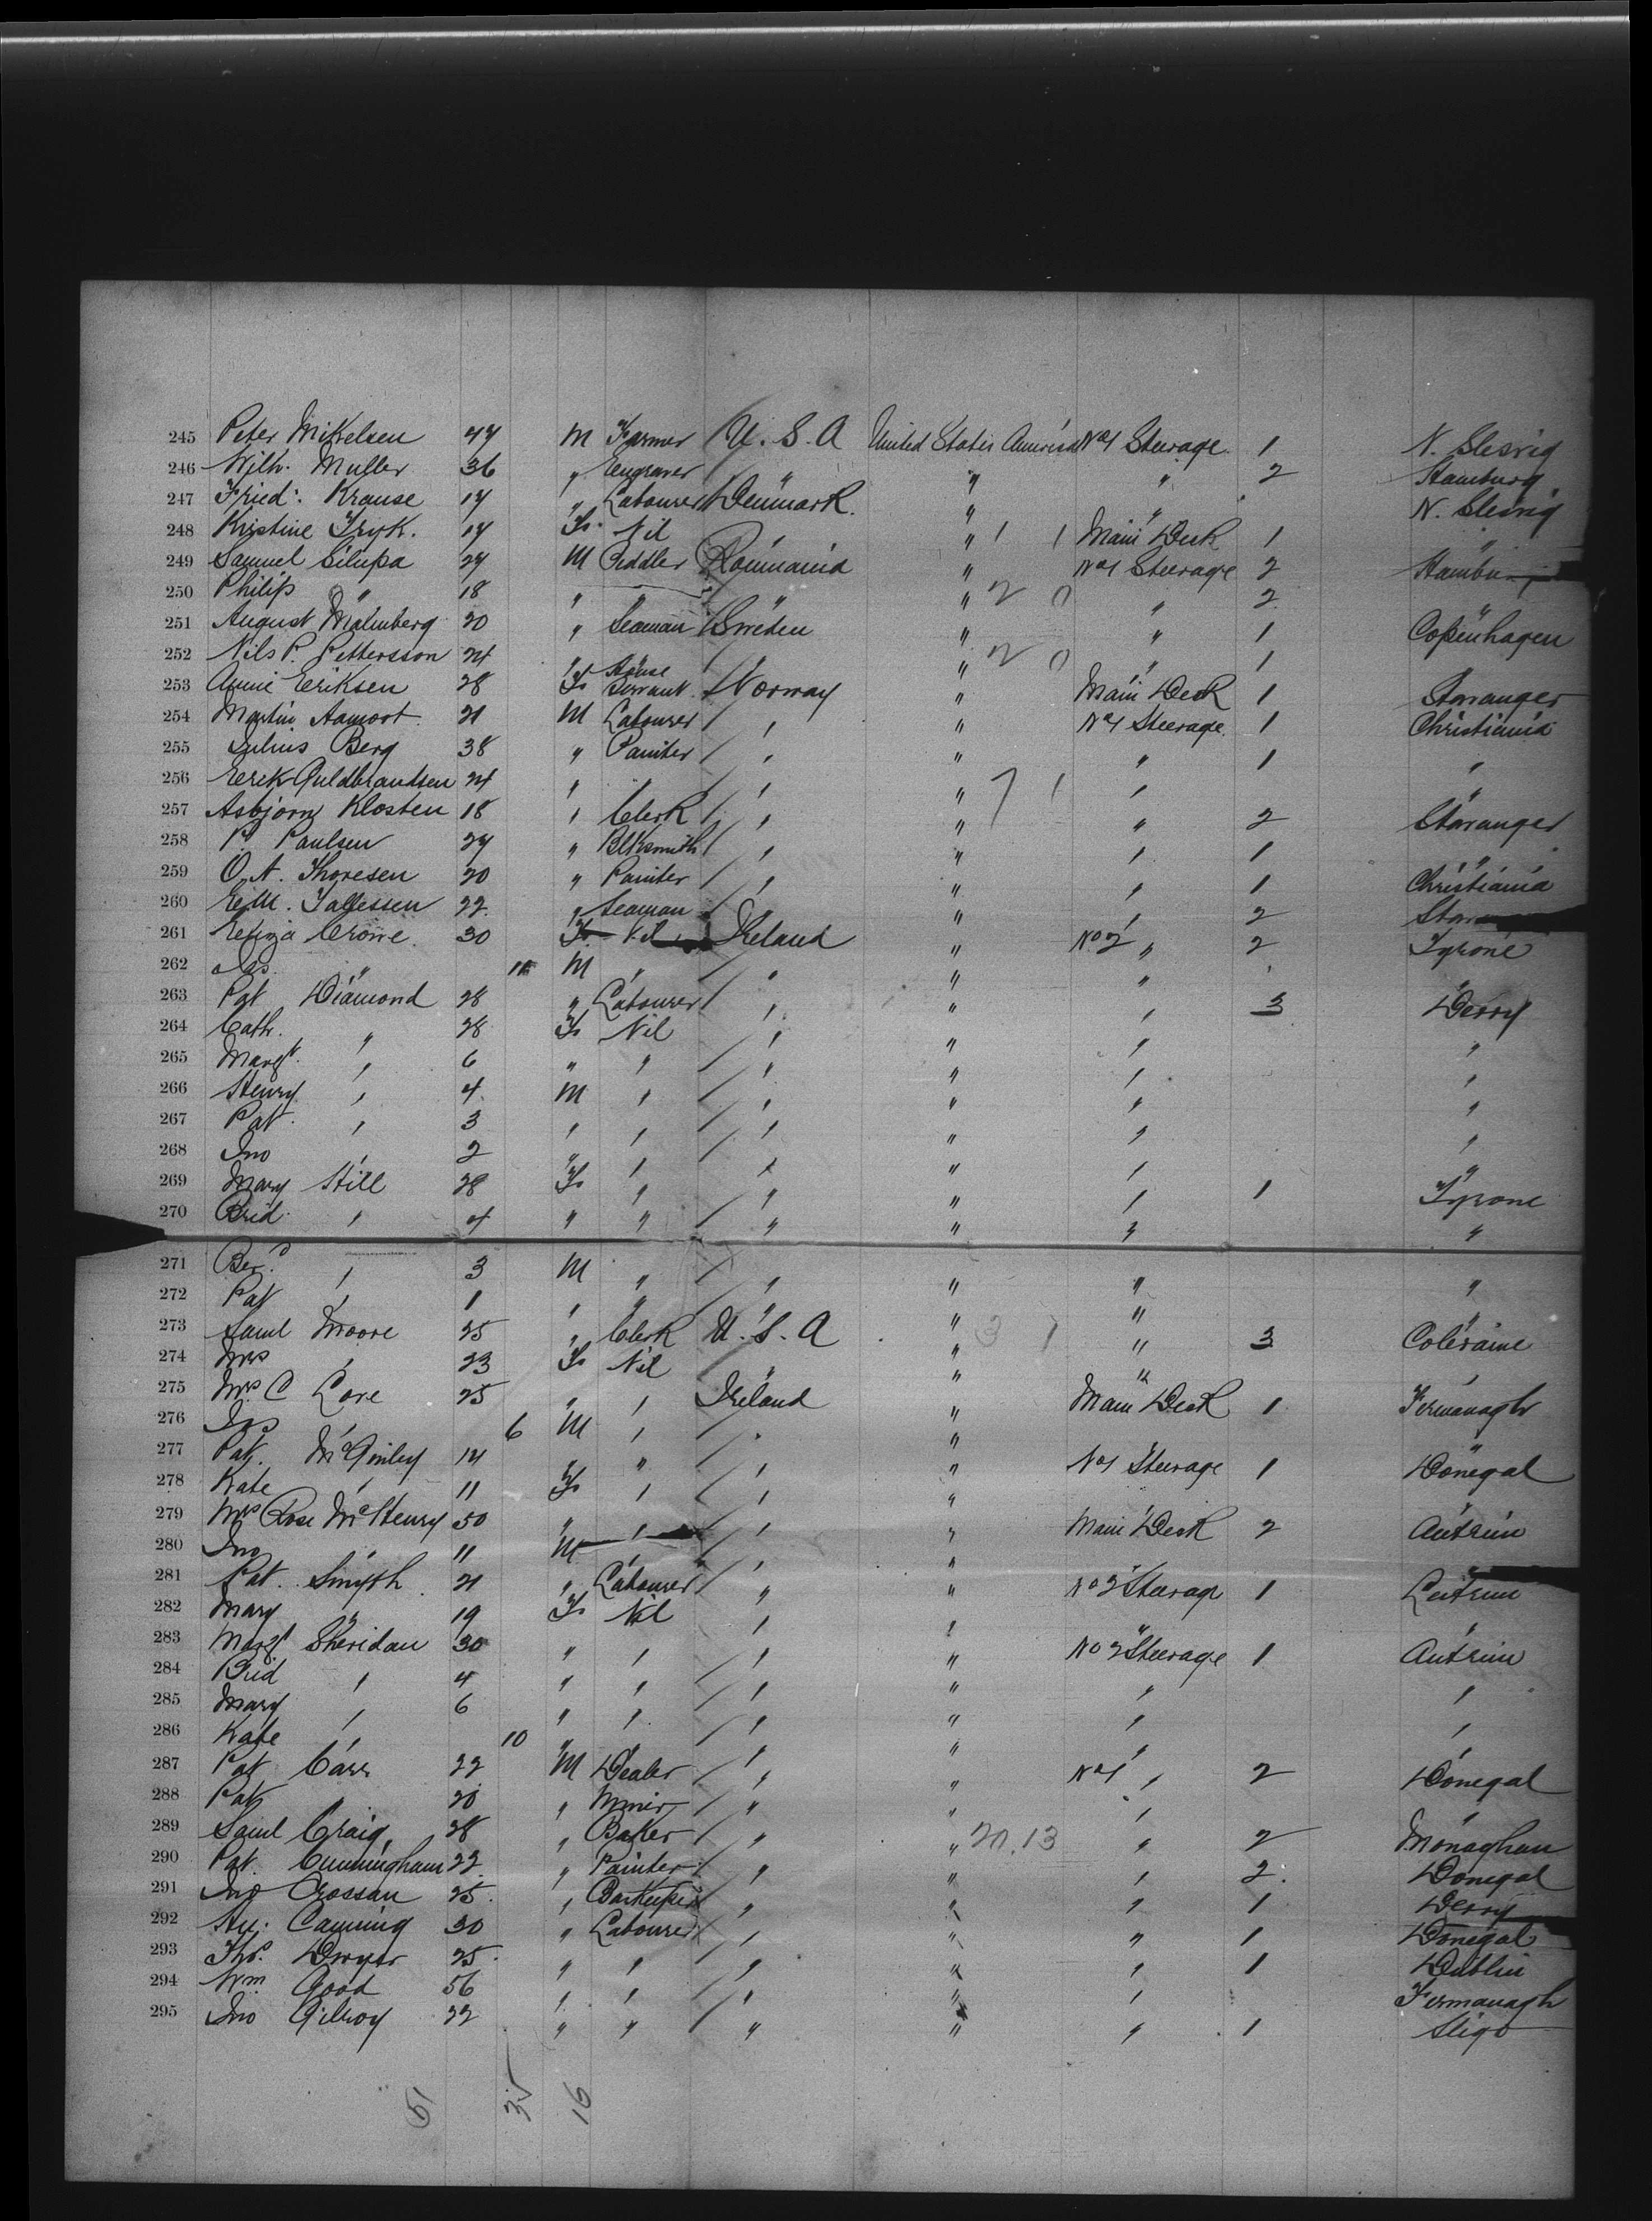 245 Peter Mikelsen 47 M Farmer U. S. A United States America No 1 Steerage 1 N. Slesvig
246 Wilh. Muller 36 " Eengraver " " " 2 Hamburg
247 Fried. Krause 17 " Labourer Denmark " " N. Slesvig
248 Kirstine Fryk. 17 F Nil " " 1 1 Main Deck 1 "
249 Samuel Silupa 27 M Peddler Roumania " No 1 Steerage 2
250 Philip " 18 " " " " 2 0 " 2
251 August Malmberg 20 " Seaman Sweden " " 1 Copenhagen
252 Nils P. Pettersson 24 " " " " 2 0 " 1 "
253 Annie Eriksen 28 F House Servant Norway " Main Deck 1 Stavanger
254 Martin Aamoot 21 M Labourer " " No 1 Steerage 1 Christiania
255 Julius Berg 38 " Painter " " " 1 "
256 Eerek Guldbrandsen 24 " " " " 7 1 " "
257 Asbjorn Klosten 18 " Clerk " " " 2 Stavanger
258 P. Paulsen 27 " Blksmith " " " 1 "
259 O. A. Thoresen 20 " Painter " " " 1 Christiania
260 22 " Seaman " " " 2
261 Crowe 30 F Nil Ireland " No 2 " 2 Tyrone
262 " 11 M " " " " "
263 Pat Diamond 28 " Labourer " " " 3 Derry
264 Cath. " 28 F Nil " " " "
265 Margt. " 6 " " " " " "
266 Henry " 4 M " " " " "
267 Pat " 3 " " " " " "
268 Jno " 2 " " " " " "
269 Mary Hill 28 F " " " " 1 Tyrone
270 Brid " 4 " " " " " "
271 " 3 M " " " " "
272 Pat " 1 " " " " " "
273 Saml Moore 25 " Clerk U. S. A " 3 1 " 3 Coleraine
274 Mrs " 23 F Nil " " " "
275 Mrs C Love 25 " " Ireland " Main Deck 1 Fermanagh
276 " 6 M " " " " "
277 Pat. McGinley 14 " " " " No 1 Steerage 1 Donegal
278 Kate " 11 F " " " " "
279 Mrs Rose McHenry 50 " " " " Main Deck 2 Antrim
280 Jno " 11 M " " " " "
281 Pat. Smyth 21 " Labourer " " No 2 Steerage 1 Leitrim
282 Mary " 19 F Nil " " " "
283 Margt Sheridan 30 " " " " No 2 Steerage 1 Antrim
284 Brid " 4 " " " " " "
285 Mary " 6 " " " " " "
286 Kate " 10 " " " " " "
287 Pat Carr 22 M Dealer " " No 1 " 2 Donegal
288 Pat " 20 " Miner " " " "
289 Saml Craig 28 " Baker " " 20.13 " 2 Monaghan
290 Pat. Cunningham 22 " Painter " " " 2 Donegal
291 Jno Crossan 25 " Barkeeper " " " 1 Derry
292 Hy. Canning 30 " Labourer " " " 1 Donegal
293 Thos. Dwyer 25 " " " " " 1 Dublin
294 Wm. Good 56 " " " " " Fermanagh
295 Jno Gilroy 22 " " " " " 1 Sligo
51 35 16